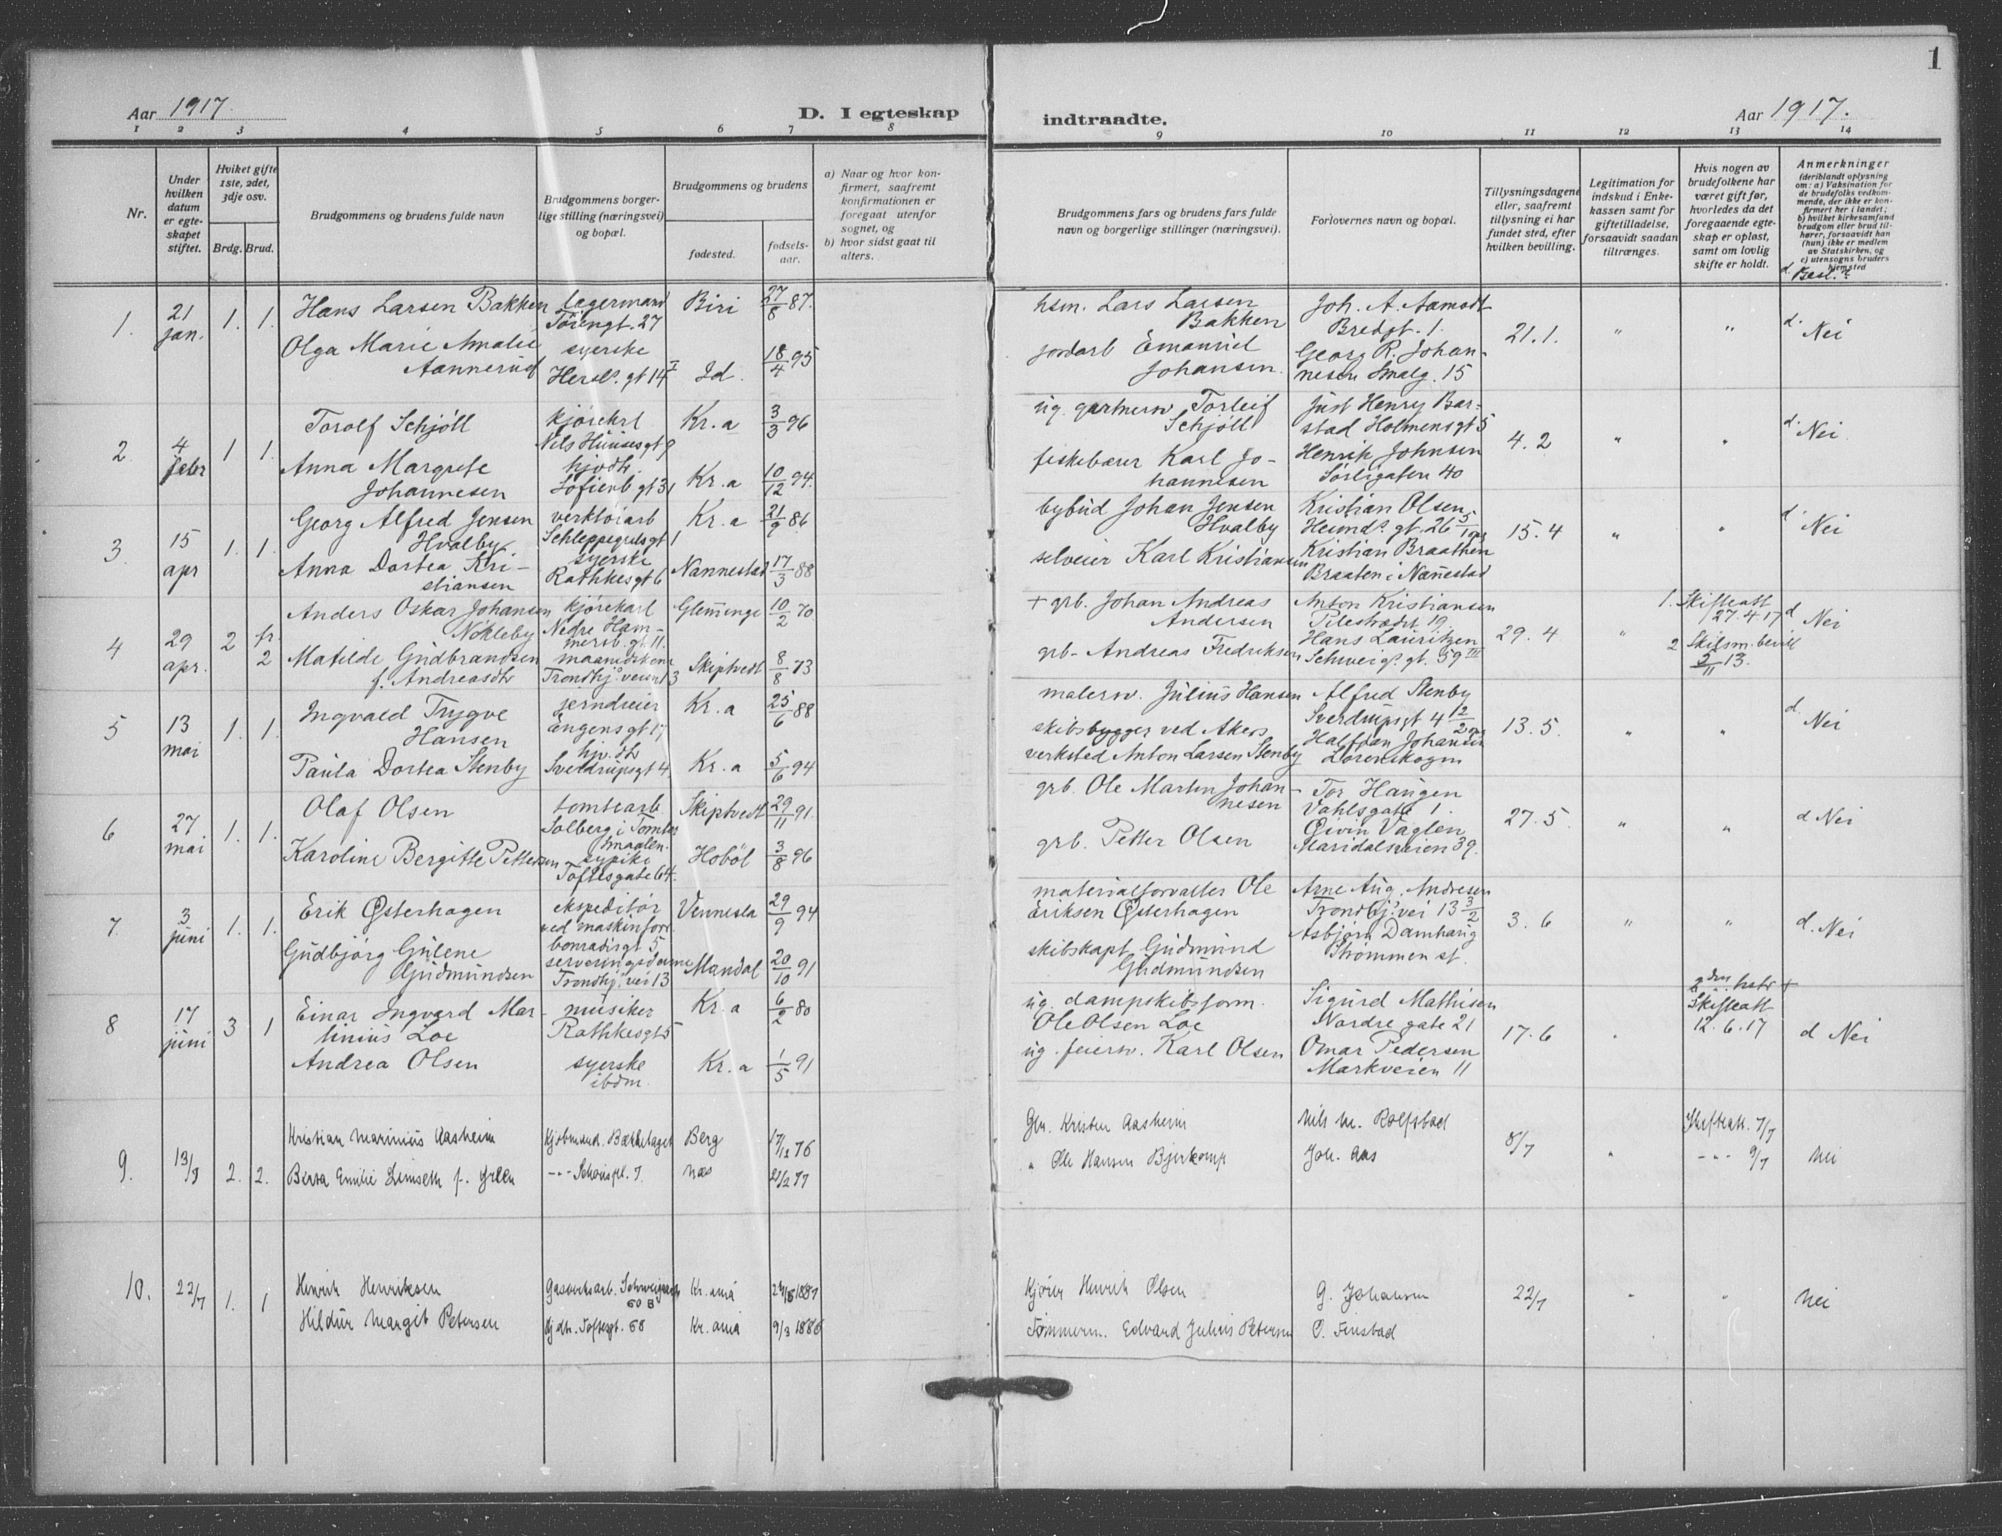 1
Aar 1917.
D. I egteskap
indtraadte.
Aar 1917.
1 2 3 4 5 6 7 8 9 10 11 12 13 14
Nr.
Under hvilken datum er egteskapet stiftet.
Hvilket gifte 1ste, 2det, 3dje osv.
Brdg. Brud.
Brudgommens og brudens fulde navn
Brudgommens borgerlige stilling (næringsvei) og bopæl.
Brudgommens og brudens
fødested.
fødselsaar.
a) Naar og hvor konfirmert, saafremt konfirmationen er foregaat utenfor sognet, og
b) hvor sidst gaat til alters.
Brudgommens fars og brudens fars fulde navn og borgerlige stillinger (næringsvei).
Forlovernes navn og bopæl.
Tillysningsdagene eller, saafremt tillysning ei har fundet sted, efter hvilken bevilling.
Legitimation for indskud i Enkekassen samt for giftetilladelse, forsaavidt saadan tiltrænges.
Hvis nogen av brudefolkene har været gift før, hvorledes da det foregaaende egteskap er opløst, samt om lovlig skifte er holdt.
Anmerkninger
(deriblandt oplysning om: a) Vaksination for de brudefolks vedkommende, der ikke er konfirmert her i landet; b) hvilket kirkesamfund brudgom eller brud tilhører, forsaavidt han (hun) ikke er medlem av Statskirken, og c) utensogns bruders hjemsted
1. 21 jan. 1. 1.
Hans Larsen Bakken
lagermand
Biri 27/8 87.
hsm. Lars Larsen Bakken
Joh. A. Aamodt
Bredgt. 1.
21.1. " " d. Nei
Olga Marie Amalie Aannerud
syerske
Id. 18/4 95
jordarb Emanuel Johansen.
Georg R. Johannesen Smalg. 15
2 4 febr 1 1.
Torolf Schjöll
kjørekarl
Nils Huusesgt 9
Kr.a 3/3 96
ug. gartnerw Torleif Schjöll
Just Henry Barstad Holmensgt 5
4.2 " " d. Nei
Anna Margrete Johannesen
hjvdtr.
Sofienb gt 31
Kr.a 10/12 94.
fiskebærer Karl Johannesen
Henrik Johnsen
Sörligaten 40
3 15 apr 1. 1.
Georg Alfred Jensen Hvalby.
verktöiarb
Schleppegrelsgt 1
Kr.a 21/9 86
bybud Johan Jensen Hvalby
Kristian Olsen
15.4 " " d. Nei
Anna Dortea Kristiansen
syerske
Rathkesgt 6
Nannestad 17/3 88
selveier Karl Kristiansen
Kristian Braathen
Braaten i Nannestad
4 29 apr. 2 fr. 2
Anders Oskar Johansen Nökleby
kjørekarl
Nedre Hammersb. gt. 11.
Glemminge 10/2 70
+ grb. Johan Andreas Andersen
Anton Kristiansen
Pilestrædet 19
29.4. " 1. Skifteatt 27.4.17
2 Skilsm. bevill 2/11 13.
d Nei
Matilde Gudbrandsen f. Andreasdtr
Trondhj. veien 13
Skiptvedt 8/8 73
grb. Andreas Fredriksen
Hans Lauritzen
Schweigs. gt. 59 III
5 13 mai 1. 1.
Ingvald Trygve Hansen
jerndreier
Engensgt 17
Kr.a 25/6 88
malersv. Julius Hansen
Alfred Stenby
Sverdrupsgt 4
13.5. " " d. Nei
Paula Dortea Stenby
hjv.dtr
Sverdrupsgt 4
Kr.a 5/6 94
skibsbygger ved Akers verksted Anton Larsen Stenby
Halfdan Johansen
Lørenskogen
6 27 mai 1. 1.
Olaf Olsen
tomtearb
Solberg i Tomter
Skiptvedt 29/11 91.
grb. Ole Martin Johannesen
Tor Haugen
Vahlsgate 1.
27.5. " " d Nei
Karoline Bergitte Pettersen
sypike
Toftesgate 64.
Hoböl 3/8 96
grb. Petter Olsen
Øivin Vaglen
Maridalsveien 39.
7. 3 juni 1. 1.
Erik Østerhagen
ekspeditör
ved maskinforr.
Vennesla 29/9 94
materialforvalter Ole Eriksen Østerhagen
Arne Aug. Andresen
Trondhj. vei 13
3.6 " " d. Nei
Gudbjörg Gulene Gudmundsen
serveringsdame
Trondhj. vei 13
Mandal 20/10 91
skibskapt. Gudmund Gudmundsen
Asbjørn Damhaug
Strömmen st.
8 17 juni 3 1
Einar Ingvard Martinius Loe
musiker
Rathkesgt 5
Kr.a 6/2 80
ug. dampskibsform. Ole Olsen Loe
Sigurd Mathisen
Nordre gate 21
17.6 "
Skifteatt 12.6.17
d Nei
Andrea Olsen
syerske
ibdm.
Kr.a 1/5 91
ug. feierw. Karl Olsen
Omar Pedersen
Markveien 11
9. 2. 2.
Kristian Marinius Aasheim
Kjöbmand. Bækkelaget
Berg 17/12 76
Gbr. Kristen Aasheim
Nils M. Rolfstad
8/7 " Skifteatt. 7/7
Emilie
Næs
" Ole Hansen Bjerkomp
Joh. Aas
9/7 Nei
10. 22/7 1. 1
Henrik Henriksen
Gasverksarb.
Kr.ania
Henrik Olsen
G. Johansen
22/7 " " Nei
Hildur Margit Petersen
Hjdtr. Toftesgt. 68
Kr.ania 9/3 1886
Tømmerm. Edvard Julius Petersen
O. Finstad